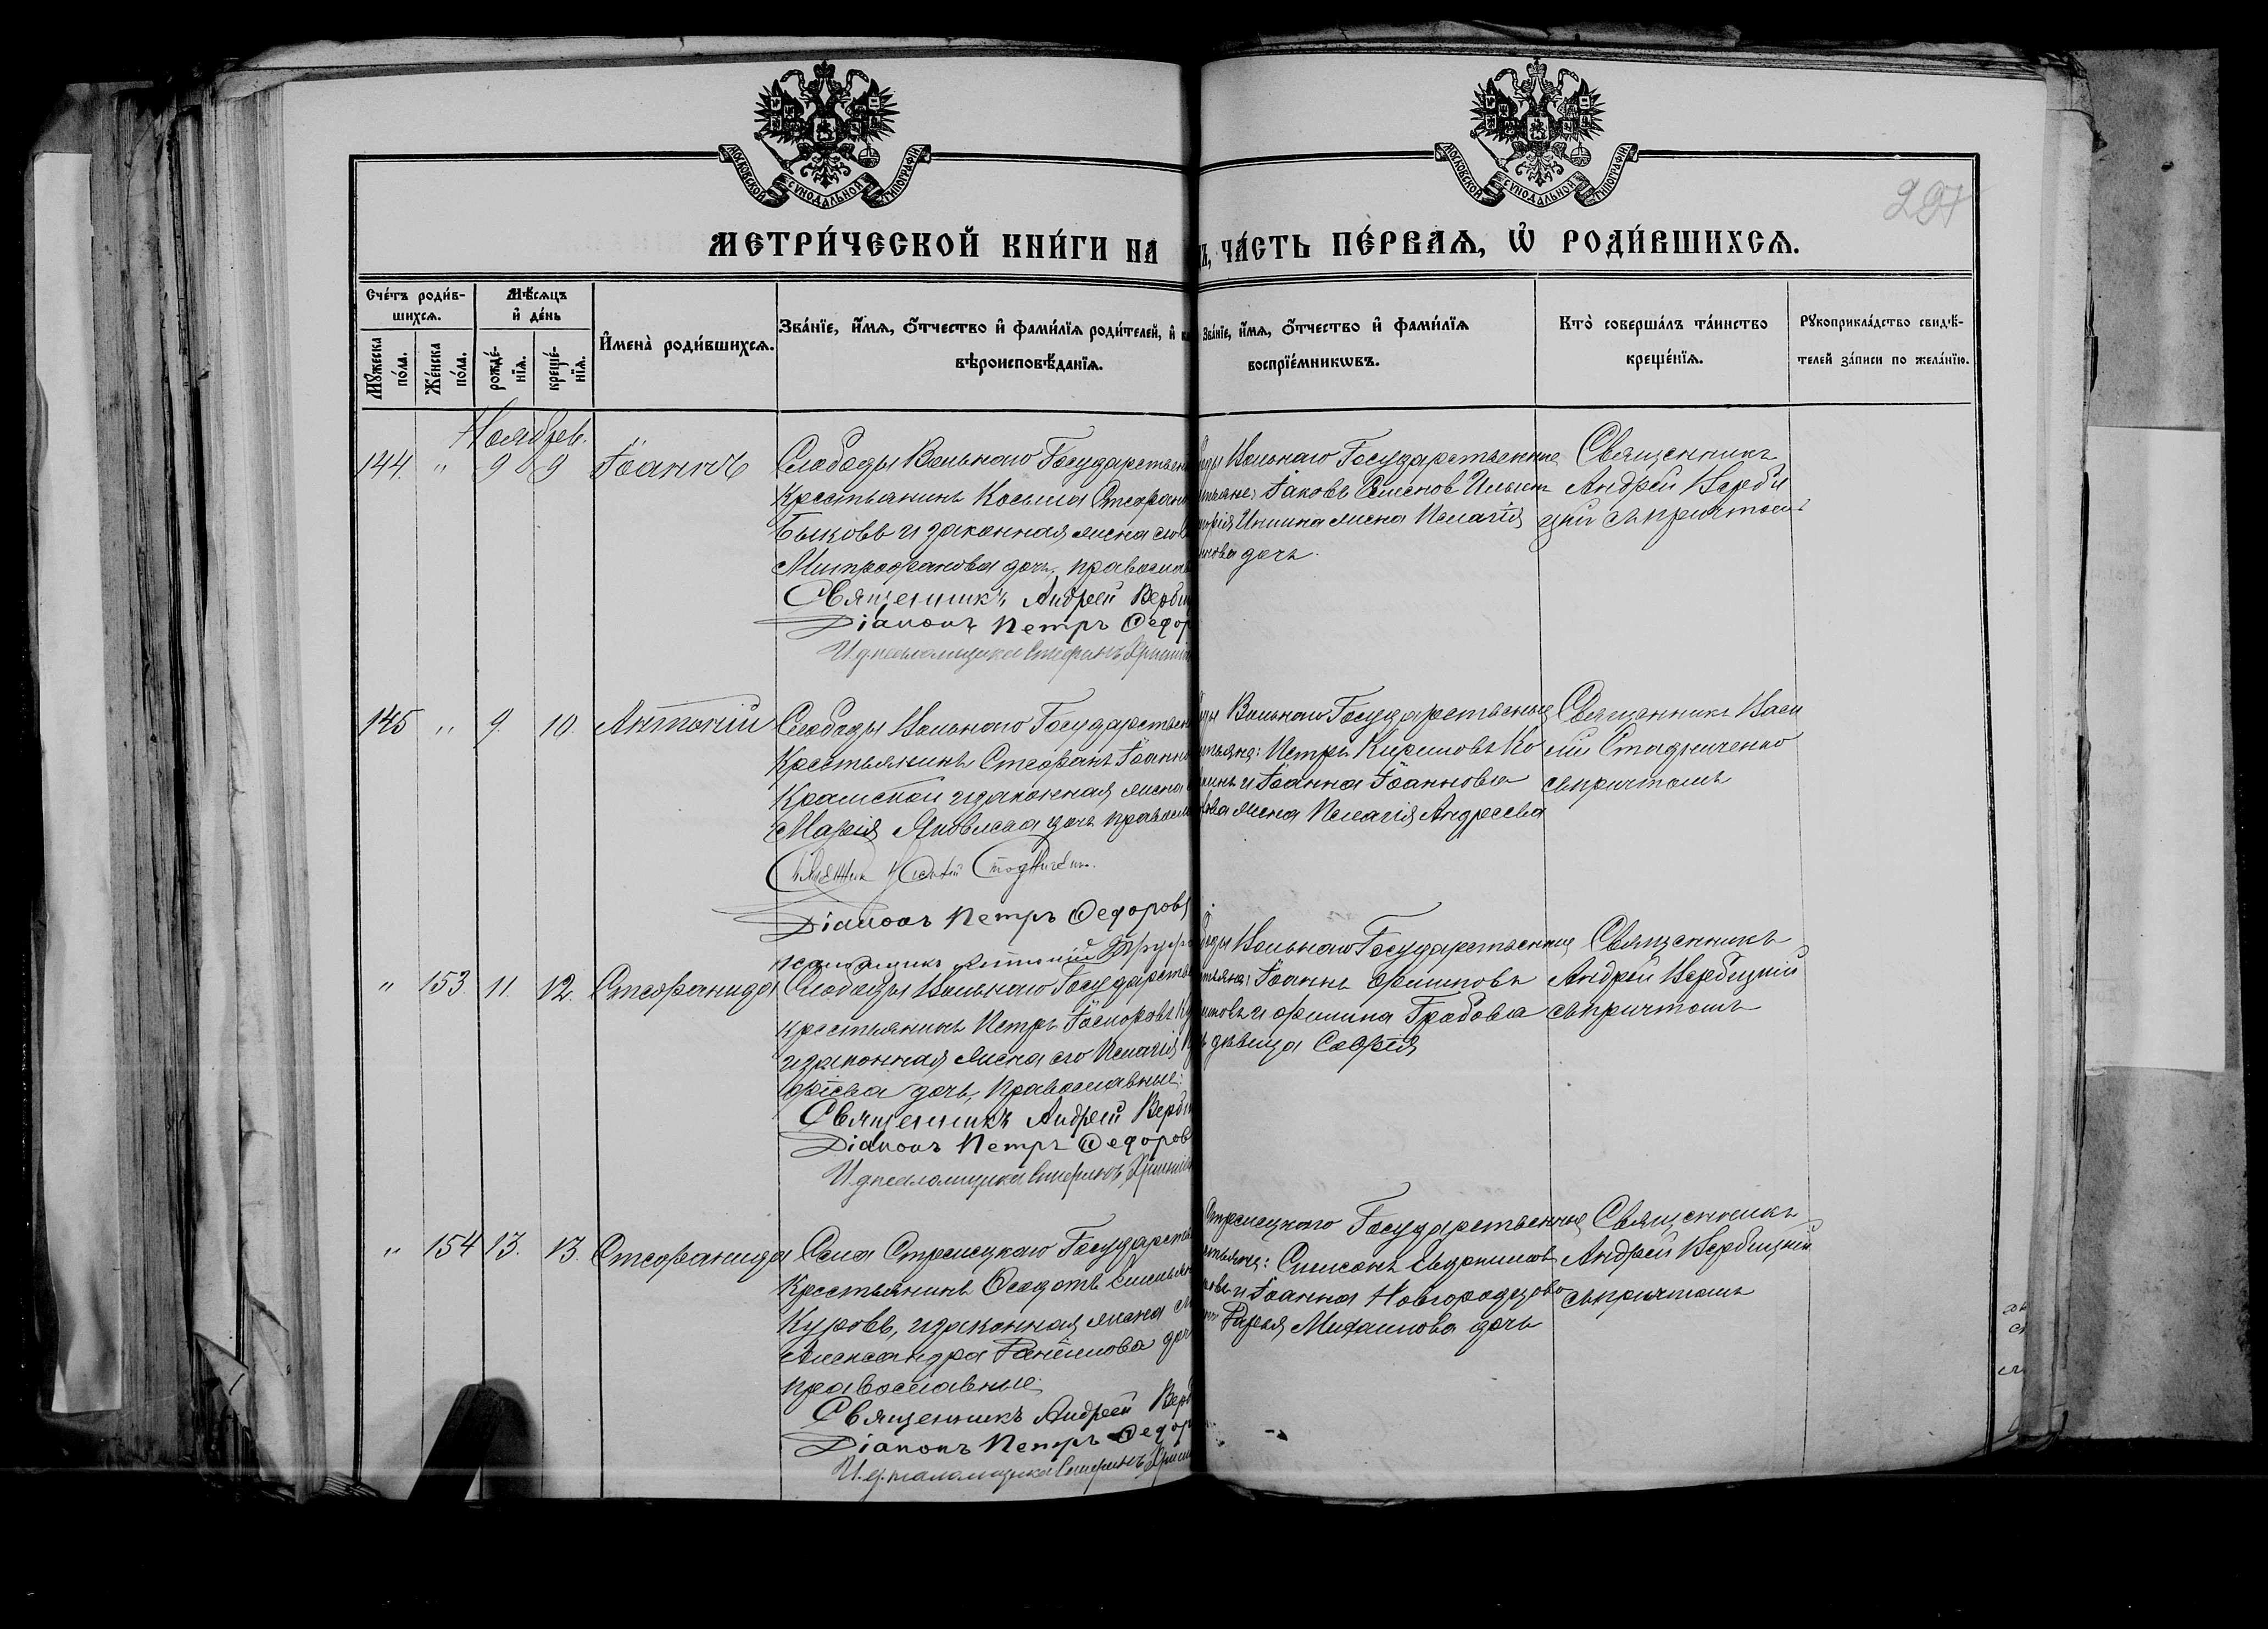 МОСКОВСКОЙ СѴНОДАЛЬНОЙ ТИПОГРАФІИ
МОСКОВСКОЙ СѴНОДАЛЬНОЙ ТИПОГРАФІИ
297
МЕТРИ́ЧЕСКОЙ КНИ́ГИ НА
ЧА́СТЬ ПЕ́РВАЯ, Ѡ РОДИ́ВШИХСЯ.
Сче́тъ роди́в-
шихся.
Мѣ́сяцъ
и де́нь
Мꙋжеска по́ла.
Же́нска по́ла.
рожде́-
нїя.
креще́-
нїя.
Имена̀ роди́вшихся.
Зва́нїе, и́мя, ѻ́тчество и фами́лїя роди́телей, и
вѣроисповѣ́данїя.
Зва́нїе, и́мя, ѻ́тчество и фами́лїя
воспрїе́мникѡвъ.
Кто̀ соверша́лъ та́инство
креще́нїя.
Рꙋкоприкла́дство свидѣ́-
телей за́писи по жела́нїю.
Ноябрь.
144. " 9 9 Іоаннъ
Слободы Вольнаго Государствен
Крестьянинъ Косьма Стефан
Быковъ и законная жена
Митрофанова дочь, православ
Священникъ Андрей Верби
Діаконъ Петръ Федор
И. д. псаломщика Стефанъ
Вольнаго Государственные
Іаковъ Семенов
жена Пелагія
дочь.
Священникъ
Андрей Верби
цкій съ причтомъ
145 " 9. 10. Антоній
Слободы Вольнаго Государствен
Крестьянинъ Стефанъ Іоанно
Крамской и законная жена
Марія Яковлева дочь правосл
Священник Василій Стадниченко
Діаконъ Петръ Федоровъ
псаломщикъ Антоній
Вольнаго Государственные
Петръ Кириловъ Ко
и Іоанна Іоаннова
жена Пелагія Андреева
Священникъ Васи
лій Стадниченко
съ причтомъ
" 153. 11. 12. Стефанида
Слободы Вольнаго Государстве
крестьянинъ Петръ
и законная жена его Пелагія
дочь, православные:
Священникъ Андрей Верби
Діаконъ Петръ Федоров
И. д. псаломщика Стефанъ
Вольнаго Государственные
Іоаннъ Филиповъ
и Филипа Грабова
дѣвица Софія
Священникъ
Андрей Вербицкій
съ причтомъ
" 154 13. 13. Стефанида
Села Стрелецкаго Государстве
Крестьянинъ Феодотъ
Куровъ, и законная жена
Александра Даніилова доч
православные:
Священникъ Андрей Верб
Діаконъ Петръ Федор
И. д. псаломщика Стефанъ
Стрелецкаго Государственные
Симеонъ Евдокимов
и Іоанна Новгородцова
Дарья Михаилова дочь
Священникъ
Андрей Вербицкій
съ причтомъ